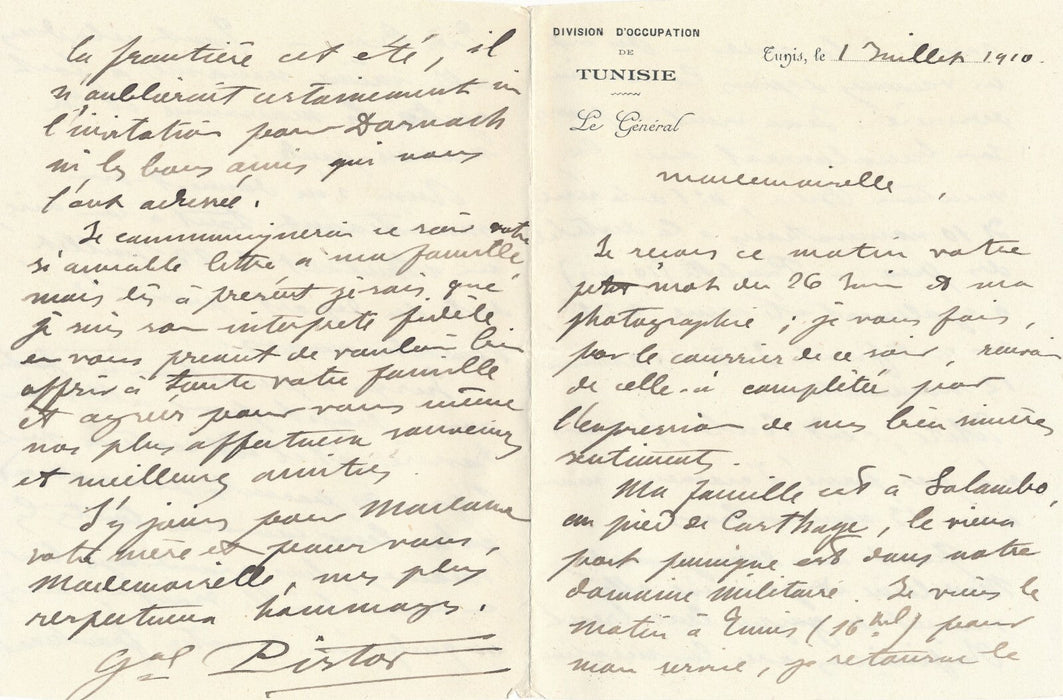 DIVISION D'OCCUPATION
DE
TUNISIE
Le Général
Tunis, le 1 Juillet 1910.
Mademoiselle,
Je reçois ce matin votre
mot du 26 Juin et ma
photographie ; je vous fais,
par le courrier de ce soir, renvoi
de celle-ci complétée par
l'expression de mes bien sincères
sentiments.
Ma famille est à Salambo,
au pied de Carthage, le vieux
port punique est dans notre
domaine militaire. Je viens le
matin à Tunis (16 kil) pour
mon service, je retourne le
la frontière cet été, il
n'oublieront certainement ni
l'invitation pour
ni les bons amis qui nous
l'ont adressée.
Je communiquerai ce soir votre
si aimable lettre à ma famille,
mais dès à présent je sais que
je suis son interprète fidèle
en vous priant de vouloir bien
offrir à toute votre famille
et agréer pour vous même
nos plus affectueux souvenirs
et meilleures amitiés
J'y joins pour Madame
votre mère et pour vous,
Mademoiselle, mes plus
respectueux hommages.
Gal Pistor